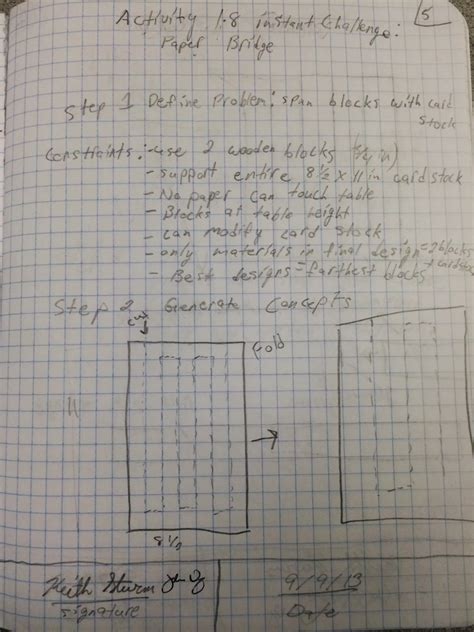 5
Activity 1.8 instant Challenge:
Paper Bridge
Step 1 Define Problem: span blocks with card
stock
Constraints: -use 2 wooden blocks (3/4 in)
- support entire 8 1/2 x 11 in card stock
- No paper can touch table
- Blocks at table height
- can modify card stock
- only materials in final design = 2 blocks
+ cardstock
- Best designs = farthest blocks
Step 2 Generate Concepts
cut
fold
11
8 1/2
Keith Sturm
signature
9/9/13
Date